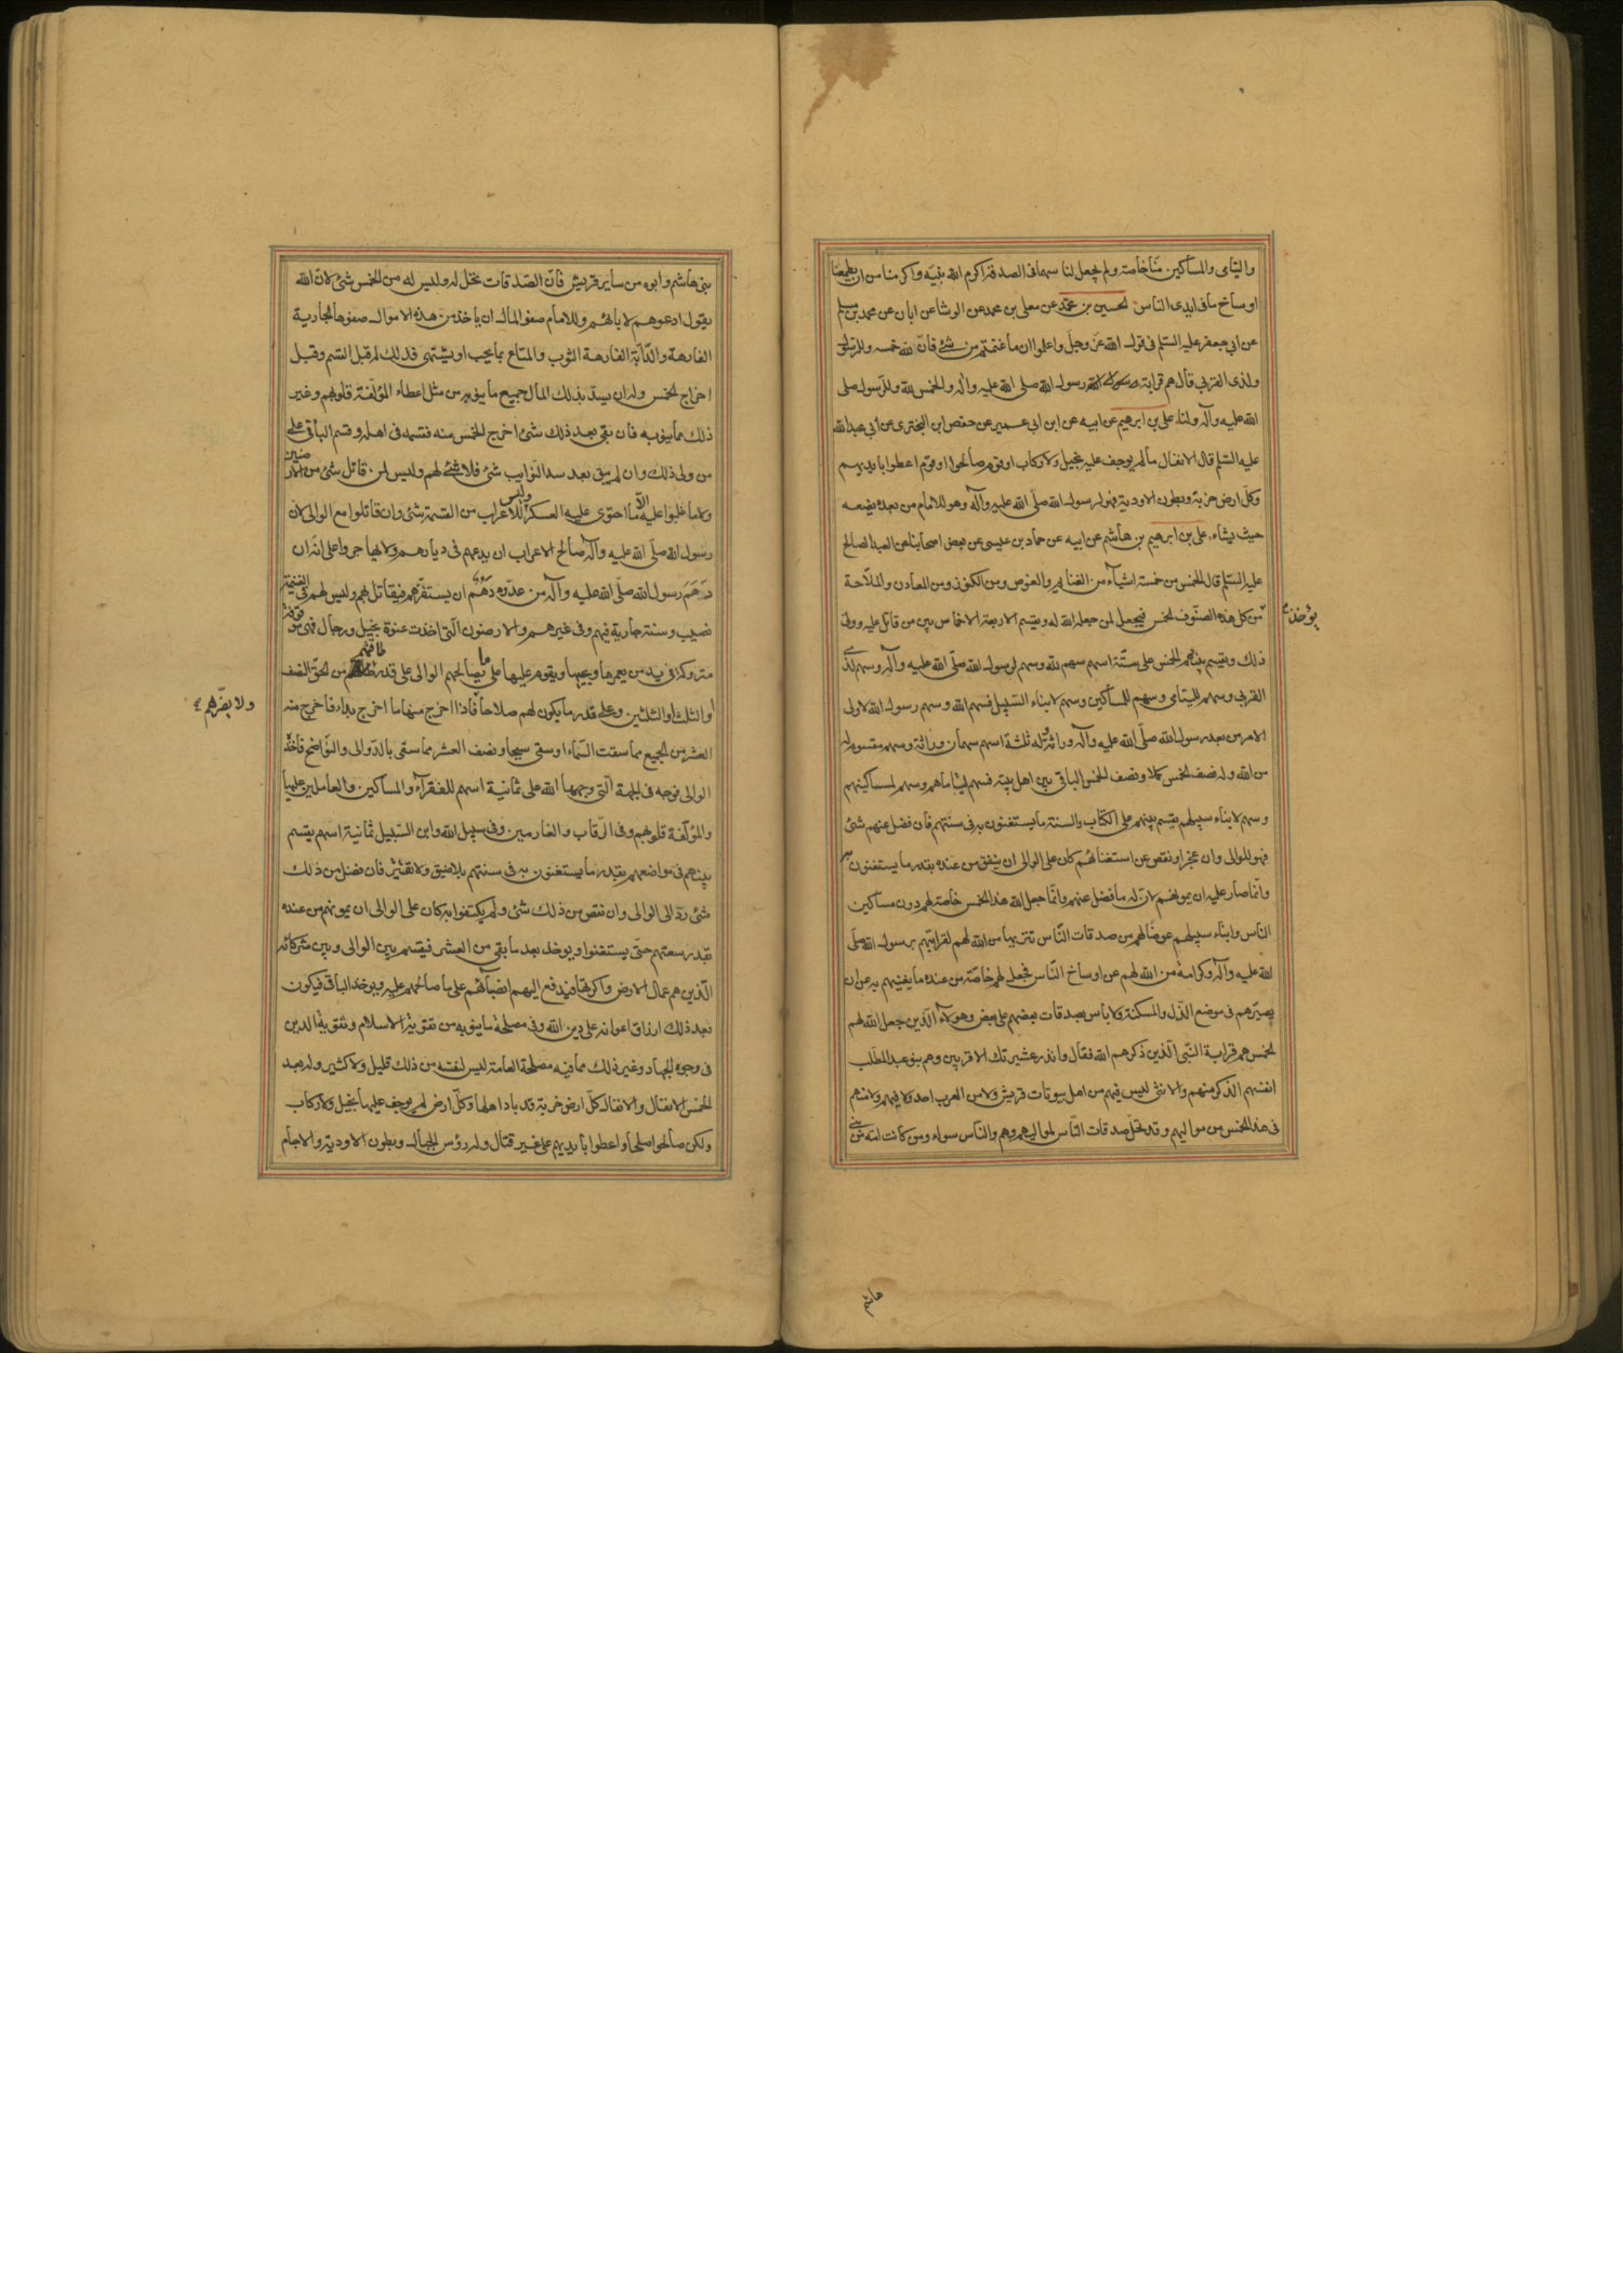 واليتامى والمساكين منا خاصة ولم يجعل لنا سهما فى الصدقة اكرم الله نبيه واكرمنا من ان يطعمنا
اوساخ ما فى ايدى الناس الحسين بن محمد عن معلى بن محمد عن الوشا عن ابان عن محمد بن مسلم
عن ابى جعفر عليه السلم فى قول الله عز وجل واعلموا ان ما غنمتم من شئ فان لله خمسه وللرسول
ولذى القربى قال هم قرابة رسول الله صلى الله عليه واله والخمس لله وللرسول صلى
الله عليه وآله ولنا على بن ابرهيم عن ابيه عن ابن ابى عمير عن حفص ابن البخترى عن أبى عبد الله
عليه السلم قال الانفال ما لم يوجف عليه بخيل ولا ركاب او قوم صالحوا او قوم اعطوا بايديهم
وكل ارض خربة وبطون الاودية فهو لرسول الله صلى الله عليه وآله وهو للامام من بعده يضعه
حيث يشاء على بن ابرهيم بن هاشم عن ابيه عن حماد بن عيسى عن بعض اصحابنا عن العبد الصالح
عليه السلم قال الخمس من خمسة اشياء من الغنايم والغوص ومن الكنوز ومن المعادن والملاحة
يؤخذ
من كل هذه الصنوف الخمس فيجعل لمن جعله الله له ويقسم الاربعة الاخماس بين من قاتل عليه وولى
ذلك ويقسم بينهم الخمس على ستة اسهم سهم لله وسهم لرسول الله صلى الله عليه وآله وسهم لذى
القربى وسهم لليتامى وسهم للمساكين وسهم لابناء السبيل فسهم الله وسهم رسول الله لاولى
الامر من بعد رسول الله صلى الله عليه وآله وراثة وله ثلثة اسهم سهمان وراثة وسهم مقسوم له
من الله وله نصف الخمس كملا ونصف الخمس الباقى بين اهل بيته فسهم ليتاماهم وسهم لمساكينهم
وسهم لابناء سبيلهم يقسم بينهم على الكتاب والسنة ما يستغنون به فى سنتهم فان فضل عنهم شئ
فهو للوالى وان عجز او نقص عن استغنائهم كان على الوالى ان ينفق من عنده بقدر ما يستغنون به
وانما صار عليه ان يمونهم لان له ما فضل عنهم وانما جعل الله هذا الخمس خاصة لهم دون مساكين
الناس وابناء سبيلهم عوضا لهم من صدقات الناس تنزيها من الله لهم لقرابتهم برسول الله صلى
الله عليه وآله وكرامة من الله لهم عن اوساخ الناس فجعل لهم خاصة من عنده ما يغنيهم به عن ان
يصيرهم فى موضع الذل والمسكنة ولا بأس بصدقات بعضهم على بعض وهولاء الذين جعل الله لهم
الخمس هم قرابة النبى الذين ذكرهم الله فقال وانذر عشيرتك الاقربين وهم بنو عبد المطلب
انفسهم الذكر منهم والانثى ليس فيهم من اهل بيوتات قريش ولا من العرب احد ولا فيهم ولا منهم
فى هذا الخمس من مواليهم وقد تحل صدقات الناس لمواليهم وهم والناس سواء ومن كانت امه من
هاشم
بنى هاشم وابوه من ساير قريش فان الصدقات تحل له وليس له من الخمس شئ لان الله
يقول ادعوهم لابائهم وللامام صفو المال ان يأخذ من هذه الاموال صفوها الجارية
الفارهة والدابة الفارهة الثوب والمتاع بما يحب او يشتهى فذلك له قبل القسم وقبل
اخراج الخمس وله ان يسد بذلك المال جميع ما ينوبه من مثل اعطاء المؤلفة قلوبهم وغير
ذلك مما ينوبه فان بقى بعد ذلك شئ اخرج الخمس منه فقسمه فى اهله وقسم الباقى على
من ولى ذلك وان لم يبق بعد سد النوايب شئ فلا شئ لهم وليس لمن قاتل شئ من الارضين
ولا ما غلبوا عليه الا ما احتوى عليه العسكر وليس للاعراب من القسمة شئ وان قاتلوا مع الوالى لان
رسول الله صلى الله عليه وآله صالح الاعراب ان يدعهم فى ديارهم ولا يهاجروا على انه ان
دهم رسول الله صلى الله عليه وآله من عدوه دهم ان يستفزهم فيقاتل بهم وليس لهم فى الغنيمة
نصيب وسنته جارية فيهم وفى غيرهم والارضون التى اخذت عنوة بخيل ورجال فهى موقوفة
متروكة فى يد من يعمرها ويحييها ويقوم عليها على ما يصالحهم الوالى على قدر طاقتهم من الحق النصف
او الثلث او الثلثين وعلى قدر ما يكون لهم صلاحا فاذا اخرج منها ما اخرج بداء فاخرج منه
ولا يضرهم
العشر من الجميع مما سقت السماء او سقى سيحا ونصف العشر مما سقى بالدوالى والنواضح فاخذه
الوالى فوجهه فى الجهة التى وجهها الله على ثمانية اسهم للفقرآء والمساكين والعاملين عليها
والمؤلفة قلوبهم وفى الرقاب والغارمين وفى سبيل الله وابن السبيل ثمانية اسهم يقسم
بينهم فى مواضعهم بقدر ما يستغنون به فى سنتهم بلا ضيق ولا تقتير فان فضل من ذلك
شئ رد الى الوالى وان نقص من ذلك شئ ولم يكتفوا به كان على الوالى ان يمونهم من عنده
بقدر سعتهم حتى يستغنوا ويوخذ بعد ما بقى من العشر فيقسم بين الوالى وبين شركائه
الذين هم عمال الارض واكرتها فيدفع اليهم انصبائهم على ما صالحهم عليه ويوخذ الباقى فيكون
بعد ذلك ارزاق اعوانه على دين الله وفى مصلحة ما ينوبه من تقوية الاسلام وتقوية الدين
فى وجوه الجهاد وغير ذلك مما فيه مصلحة العامة ليس لنفسه من ذلك قليل ولا كثير وله بعد
الخمس الانفال والانفال كل ارض خربة قد باد اهلها وكل ارض لم يوجف عليها بخيل ولا ركاب
ولكن صالحوا صلحا واعطوا بايديهم على غير قتال وله رؤس الجبال وبطون الاودية والاجام